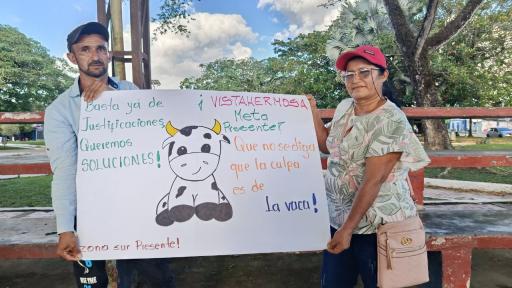 Basta ya de
Justificaciones
Queremos
SOLUCIONES!
¡ VISTAHERMOSA
Meta
Presente!
Que no se diga
que la culpa
es de
La vaca!
zona sur Presente!